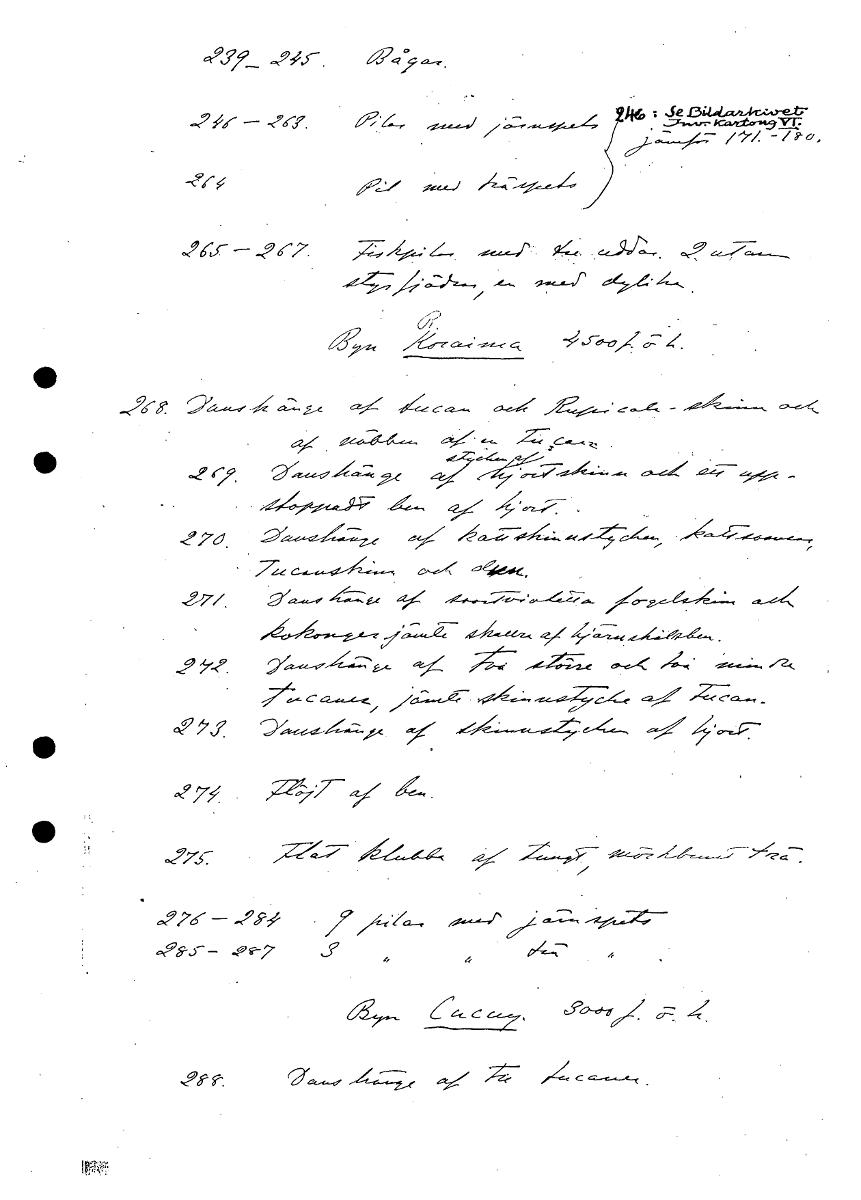 239-245. Bågar.
246-263. Pilar med järnspets
246: Se Bildarkivet
Inv. Kartong VI.
jämför 171.-180.
264 Pil med träspets
265-267. Fiskpilar med tre uddar. 2 utan
styrfjädrar, en med dylika.
Byn Roraima 4500 f. ö. h.
268. Danshänge af tucan och Rupicola-skinn och
af näbben af en Tucan.
269. Danshänge af stycken af hjortskinn och ett upp-
stoppadt ben af hjort.
270. Danshänge af kattskinnstycken, kattsvansar,
Tucanskinn och
271. Danshänge af svartvioletta fogelskinn och
kokonger jämte skallra af hjärnskålsben.
272. Danshänge af två större och två mindre
tucaner, jämte skinnstycke af Tucan.
273. Danshänge af skinnstycken af hjort.
274. Flöjt af ben.
275. Flat klubba af tungt, mörkbrunt trä.
276-284 9 pilar med järnspets
285-287 3 " " trä "
Byn Cucuy. 3000 f. ö. h.
288. Danshänge af tre tucaner.